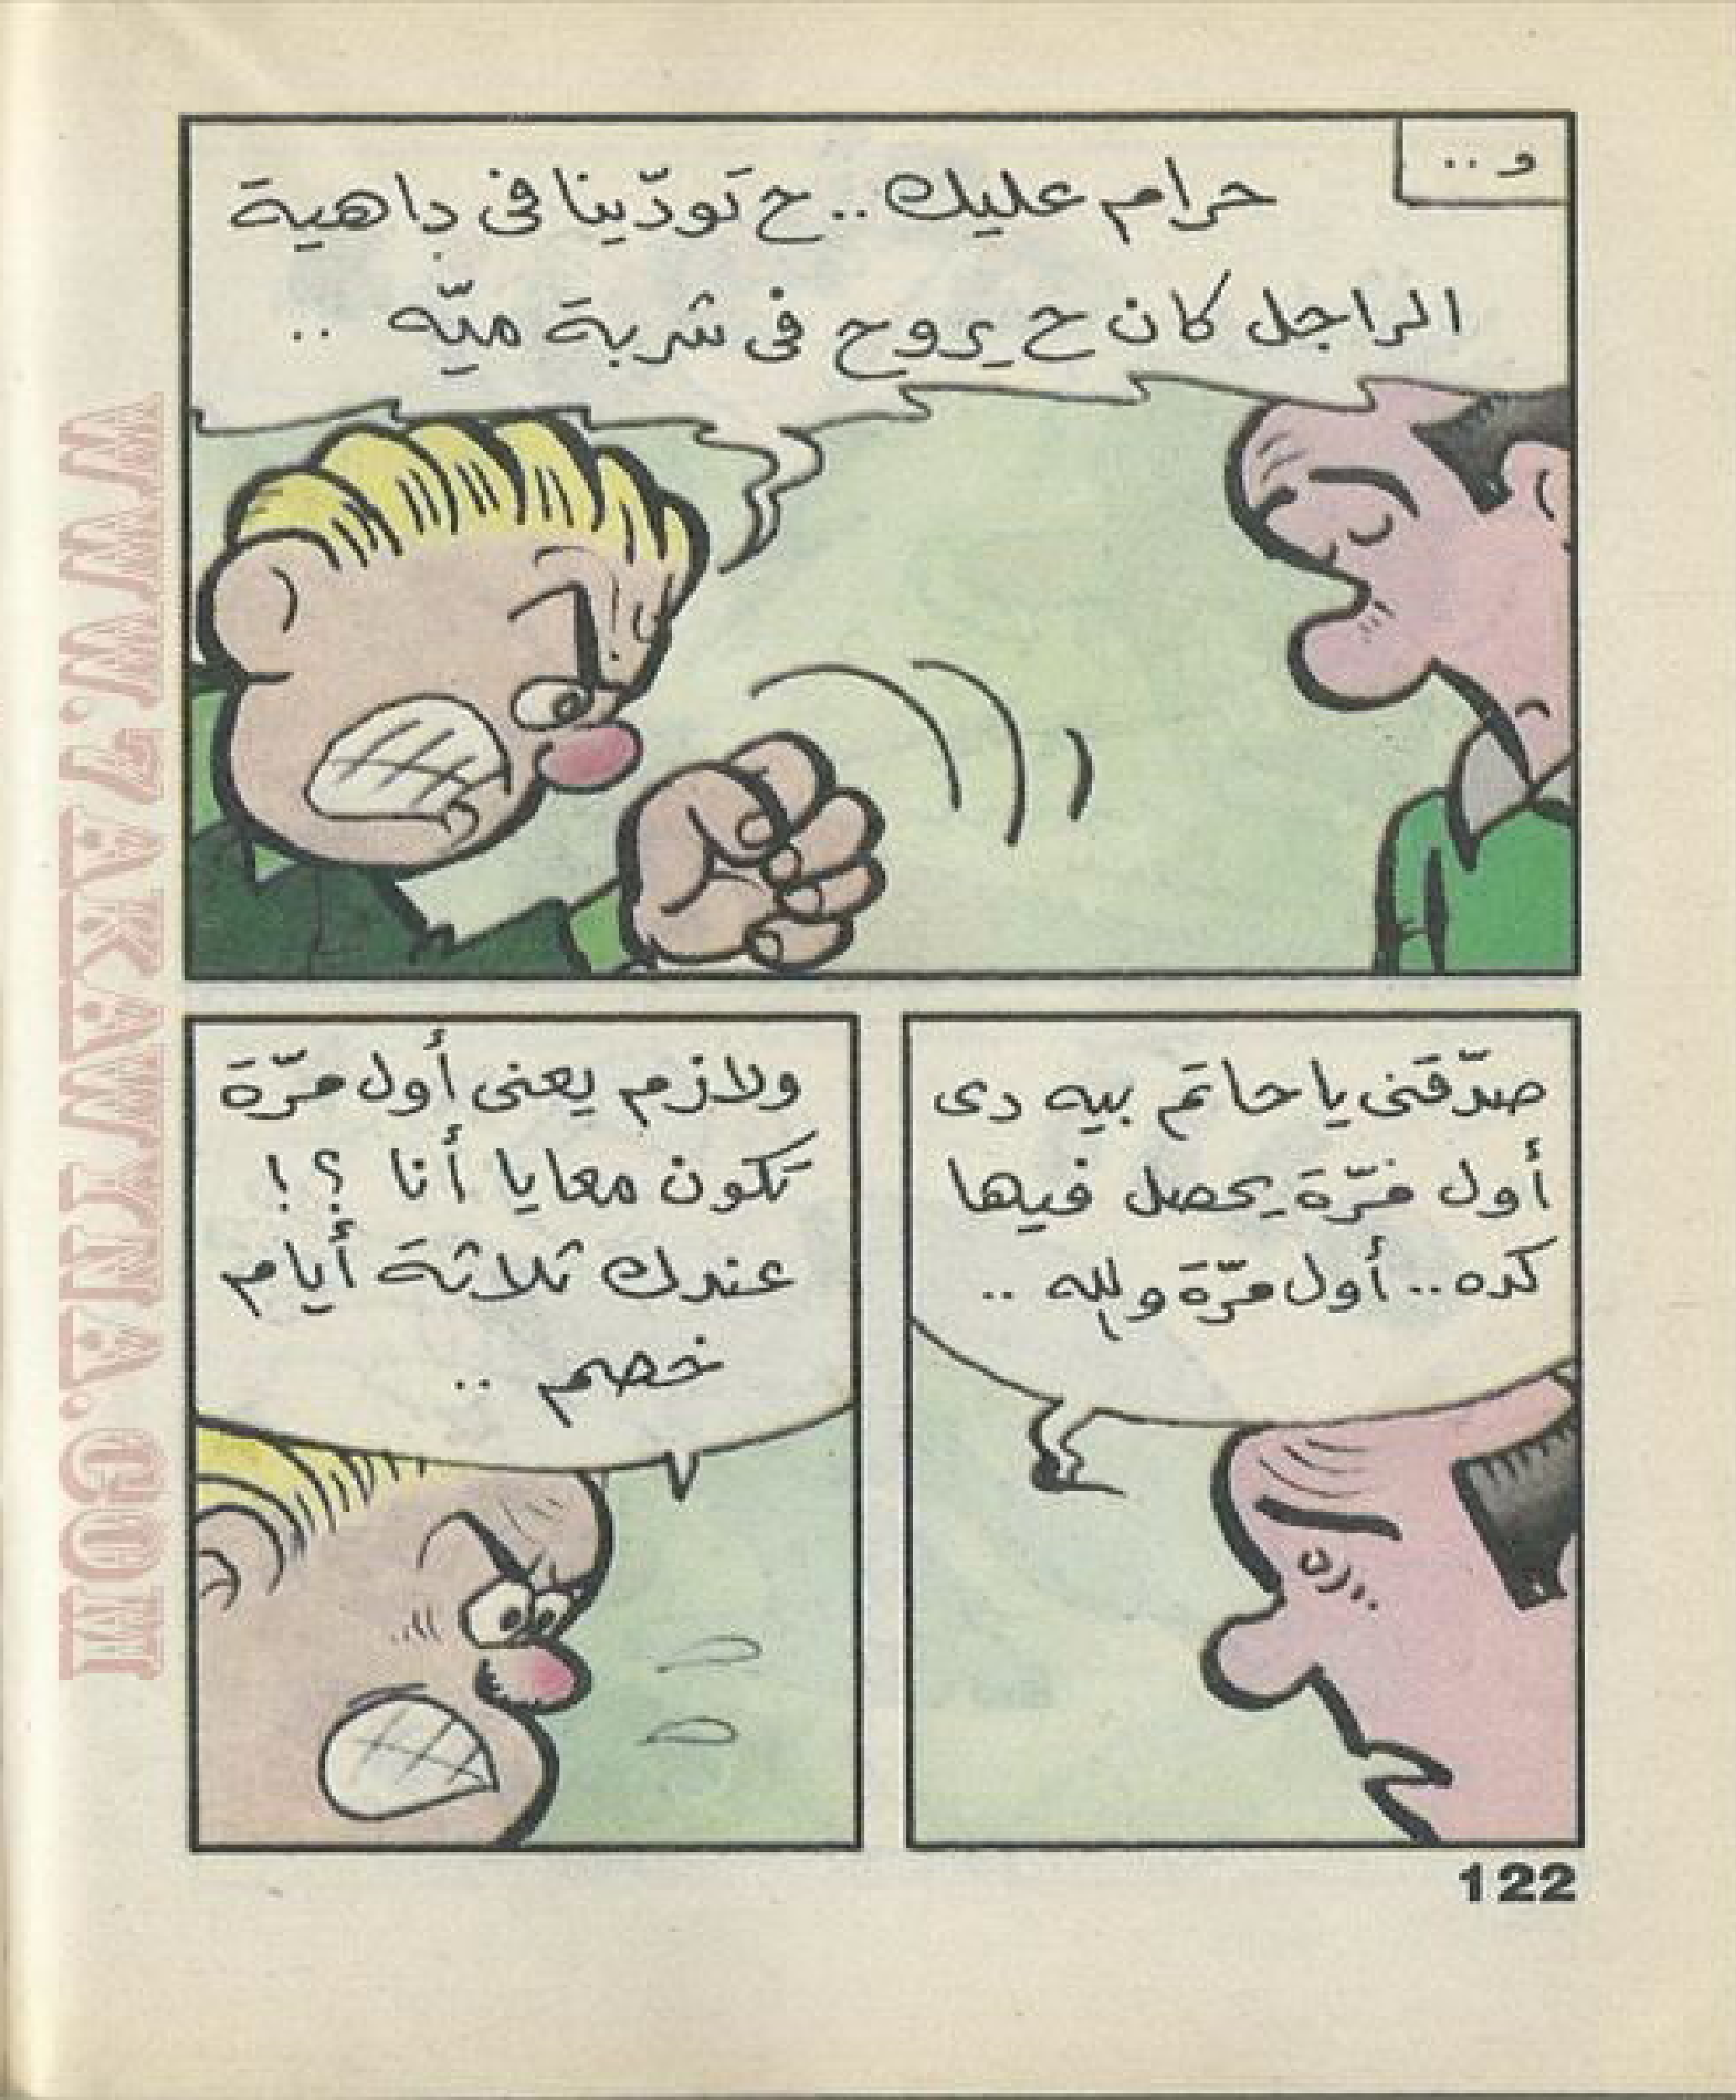 و ..
حرام عليك .. ح تودّينا فى داهية
الراجل كان ح يروح فى شربة ميّه ..
صدّقنى يا حاتم بيه دى
أول مرّة يحصل فيها
كده .. أول مرّة والله ..
ولازم يعنى أول مرّة
تكون معايا أنا ؟!
عندك ثلاثة أيام
خصم ..
122